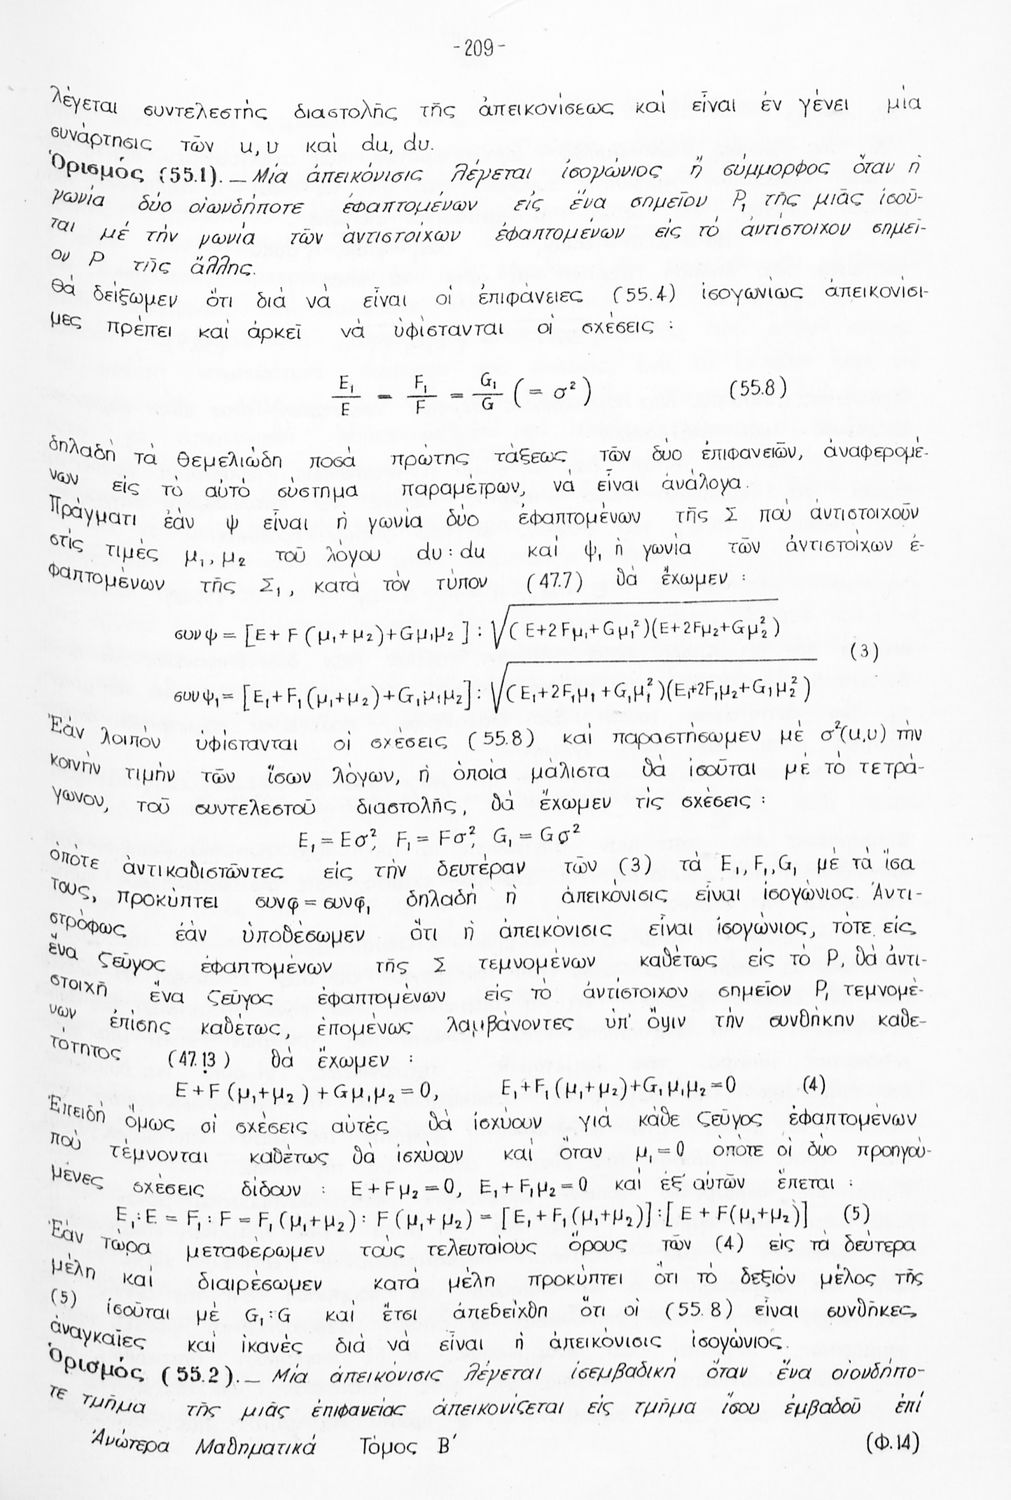 -209-
λέγεται συντελεστής διαστολῆς τῆς ἀπεικονίσεως καί εἶναι ἐν γένει μία
συνάρτησις τῶν u, υ καί du, dυ.
Ὁρισμός (55.1).— Μία ἀπεικόνισις λέγεται ἰσογώνιος ἤ σύμμορφος ὅταν ἡ
γωνία δύο οἱωνδήποτε ἐφαπτομένων εἰς ἕνα σημεῖον P₁ τῆς μιᾶς ἰσοῦ-
ται μέ τήν γωνία τῶν ἀντιστοίχων ἐφαπτομένων εἰς τό ἀντίστοιχον σημεῖ-
ον P τῆς ἄλλης.
Θά δείξωμεν ὅτι διά νά εἶναι οἱ ἐπιφάνειες (55.4) ἰσογωνίως ἀπεικονίσι-
μες πρέπει καί ἀρκεῖ νά ὑφίστανται οἱ σχέσεις :
E₁/E = F₁/F = G₁/G (= σ²) (55.8)
δηλαδή τά θεμελιώδη ποσά πρώτης τάξεως τῶν δύο ἐπιφανειῶν, ἀναφερομέ-
νων εἰς τό αὐτό σύστημα παραμέτρων, νά εἶναι ἀνάλογα.
Πράγματι ἐάν ψ εἶναι ἡ γωνία δύο ἐφαπτομένων τῆς Σ πού ἀντιστοιχοῦν
στίς τιμές μ₁, μ₂ τοῦ λόγου dυ : du καί ψ₁ ἡ γωνία τῶν ἀντιστοίχων ἐ-
φαπτομένων τῆς Σ₁, κατά τόν τύπον (47.7) θά ἔχωμεν :
συνψ = [E+ F (μ₁+μ₂)+Gμ₁μ₂ ] : √( E+2Fμ₁+Gμ₁²)(E+2Fμ₂+Gμ₂²)
(3)
συνψ₁= [E₁+F₁(μ₁+μ₂)+G₁μ₁μ₂] : √(E₁+2F₁μ₁+G₁μ₁²)(E₁+2F₁μ₂+G₁μ₂²)
Ἐάν λοιπόν ὑφίστανται οἱ σχέσεις (55.8) καί παραστήσωμεν μέ σ²(u,υ) τήν
κοινήν τιμήν τῶν ἴσων λόγων, ἡ ὁποία μάλιστα θά ἰσοῦται μέ τό τετρά-
γωνον, τοῦ συντελεστοῦ διαστολῆς, θά ἔχωμεν τίς σχέσεις :
E₁ = Eσ², F₁ = Fσ², G₁ = Gσ²
ὁπότε ἀντικαθιστῶντες εἰς τήν δευτέραν τῶν (3) τά E₁, F₁, G₁ μέ τά ἴσα
τους, προκύπτει συνφ = συνφ₁ δηλαδή ἡ ἀπεικόνισις εἶναι ἰσογώνιος. Ἀντι-
στρόφως ἐάν ὑποθέσωμεν ὅτι ἡ ἀπεικόνισις εἶναι ἰσογώνιος, τότε εἰς
ἕνα ζεῦγος ἐφαπτομένων τῆς Σ τεμνομένων καθέτως εἰς τό P, θά ἀντι-
στοιχῆ ἕνα ζεῦγος ἐφαπτομένων εἰς τό ἀντίστοιχον σημεῖον P₁ τεμνομέ-
νων ἐπίσης καθέτως, ἐπομένως λαμβάνοντες ὑπ' ὄψιν τήν συνθήκην καθε-
τότητος (47.13) θά ἔχωμεν :
E+F (μ₁+μ₂) + Gμ₁μ₂ = 0, E₁+F₁(μ₁+μ₂)+G₁μ₁μ₂=0 (4)
Ἐπειδή ὅμως οἱ σχέσεις αὐτές θά ἰσχύουν γιά κάθε ζεῦγος ἐφαπτομένων
πού τέμνονται καθέτως θά ἰσχύουν καί ὅταν μ₁ = 0 ὁπότε οἱ δύο προηγού-
μένες σχέσεις δίδουν : E+Fμ₂ = 0, E₁+F₁μ₂ = 0 καί ἐξ αὐτῶν ἕπεται :
E₁:E = F₁:F = F₁(μ₁+μ₂): F(μ₁+μ₂) = [E₁+F₁(μ₁+μ₂)]:[E + F(μ₁+μ₂)] (5)
Ἐάν τώρα μεταφέρωμεν τούς τελευταίους ὅρους τῶν (4) εἰς τά δεύτερα
μέλη καί διαιρέσωμεν κατά μέλη προκύπτει ὅτι τό δεξιόν μέλος τῆς
(5) ἰσοῦται μέ G₁:G καί ἔτσι ἀπεδείχθη ὅτι οἱ (55.8) εἶναι συνθῆκες
ἀναγκαῖες καί ἱκανές διά νά εἶναι ἡ ἀπεικόνισις ἰσογώνιος.
Ὁρισμός (55.2).— Μία ἀπεικόνισις λέγεται ἰσεμβαδική ὅταν ἕνα οἱονδήπο-
τε τμῆμα τῆς μιᾶς ἐπιφανείας ἀπεικονίζεται εἰς τμῆμα ἴσου ἐμβαδοῦ ἐπί
Ἀνώτερα Μαθηματικά Τόμος Β΄ (Φ.14)